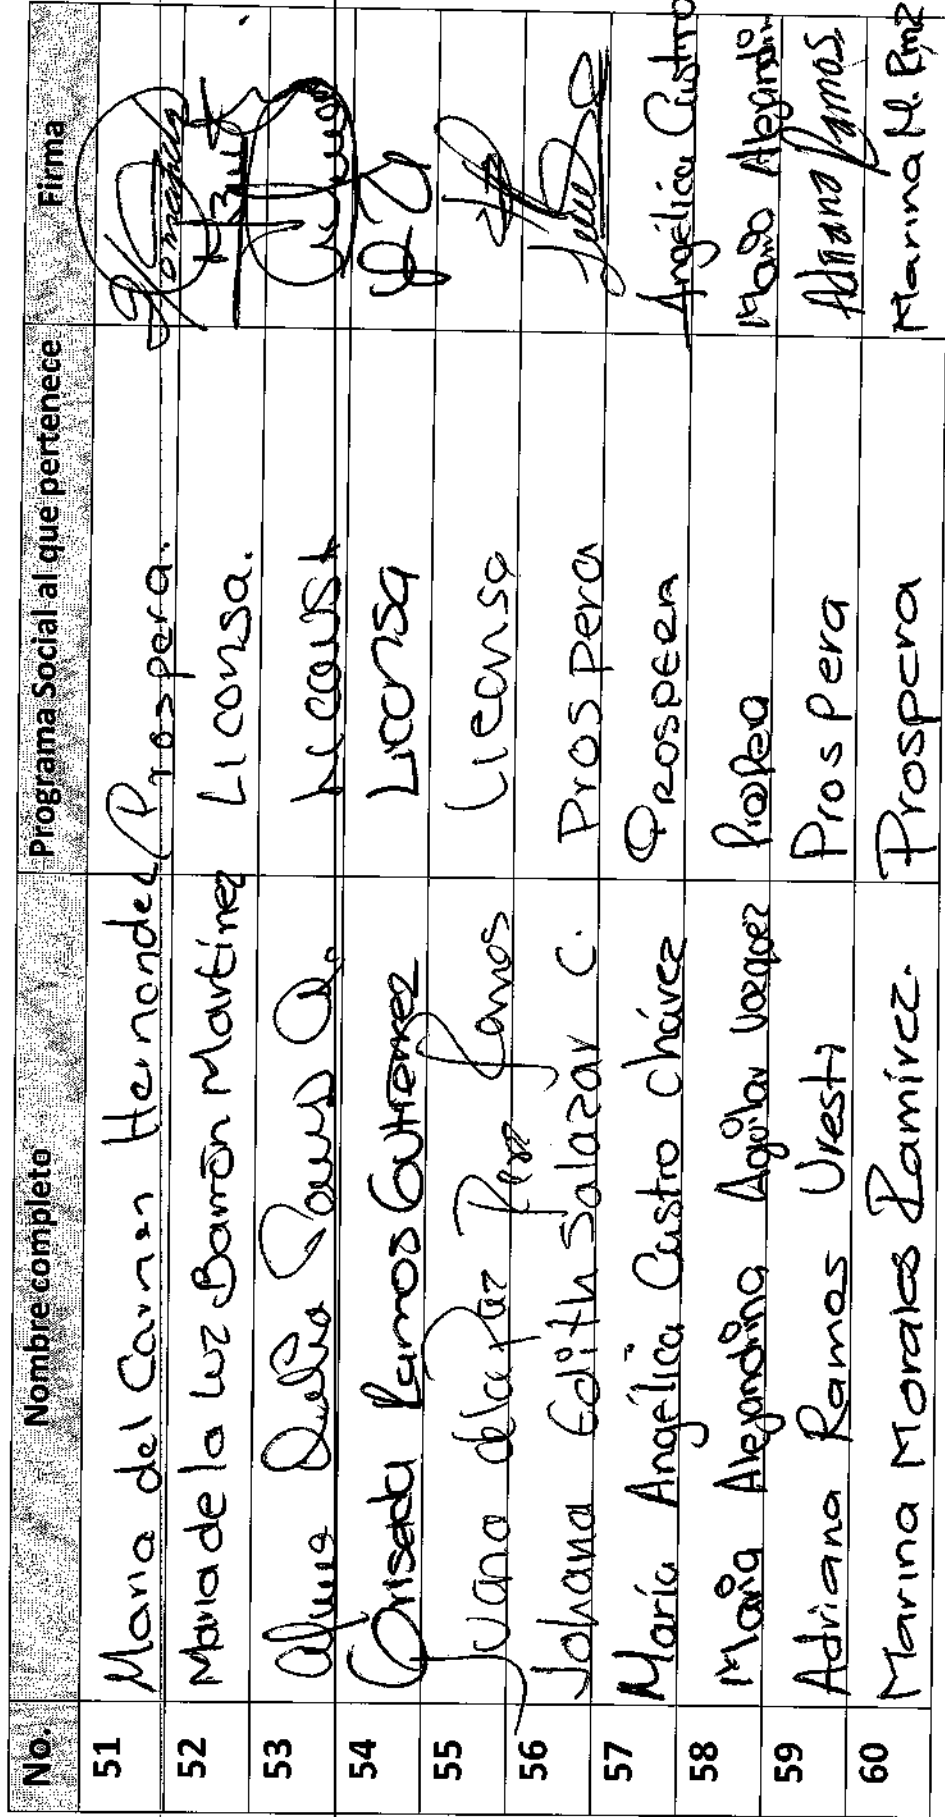 No. Nombre completo Programa Social al que pertenece Firma
51 Maria del Carmen Hernandez Prospera.
52 Maria de la Luz Barrón Martínez Liconsa.
53 Alma Delia
54 Crisada Ramos Gutierrez Liconsa
55 Juana de la Paz Ramos Liconsa
56 Johana Edith Salazar C. Prospera
57 María Angélica Castro Chávez Prospera Angélica Castro
58 Maria Alejandrina Aguilar Vazquez Prospera Maria Alejandrin
59 Adriana Ramos Uresti Prospera Adriana Ramos
60 Marina Morales Ramírez. Prospera Marina M. Rmz